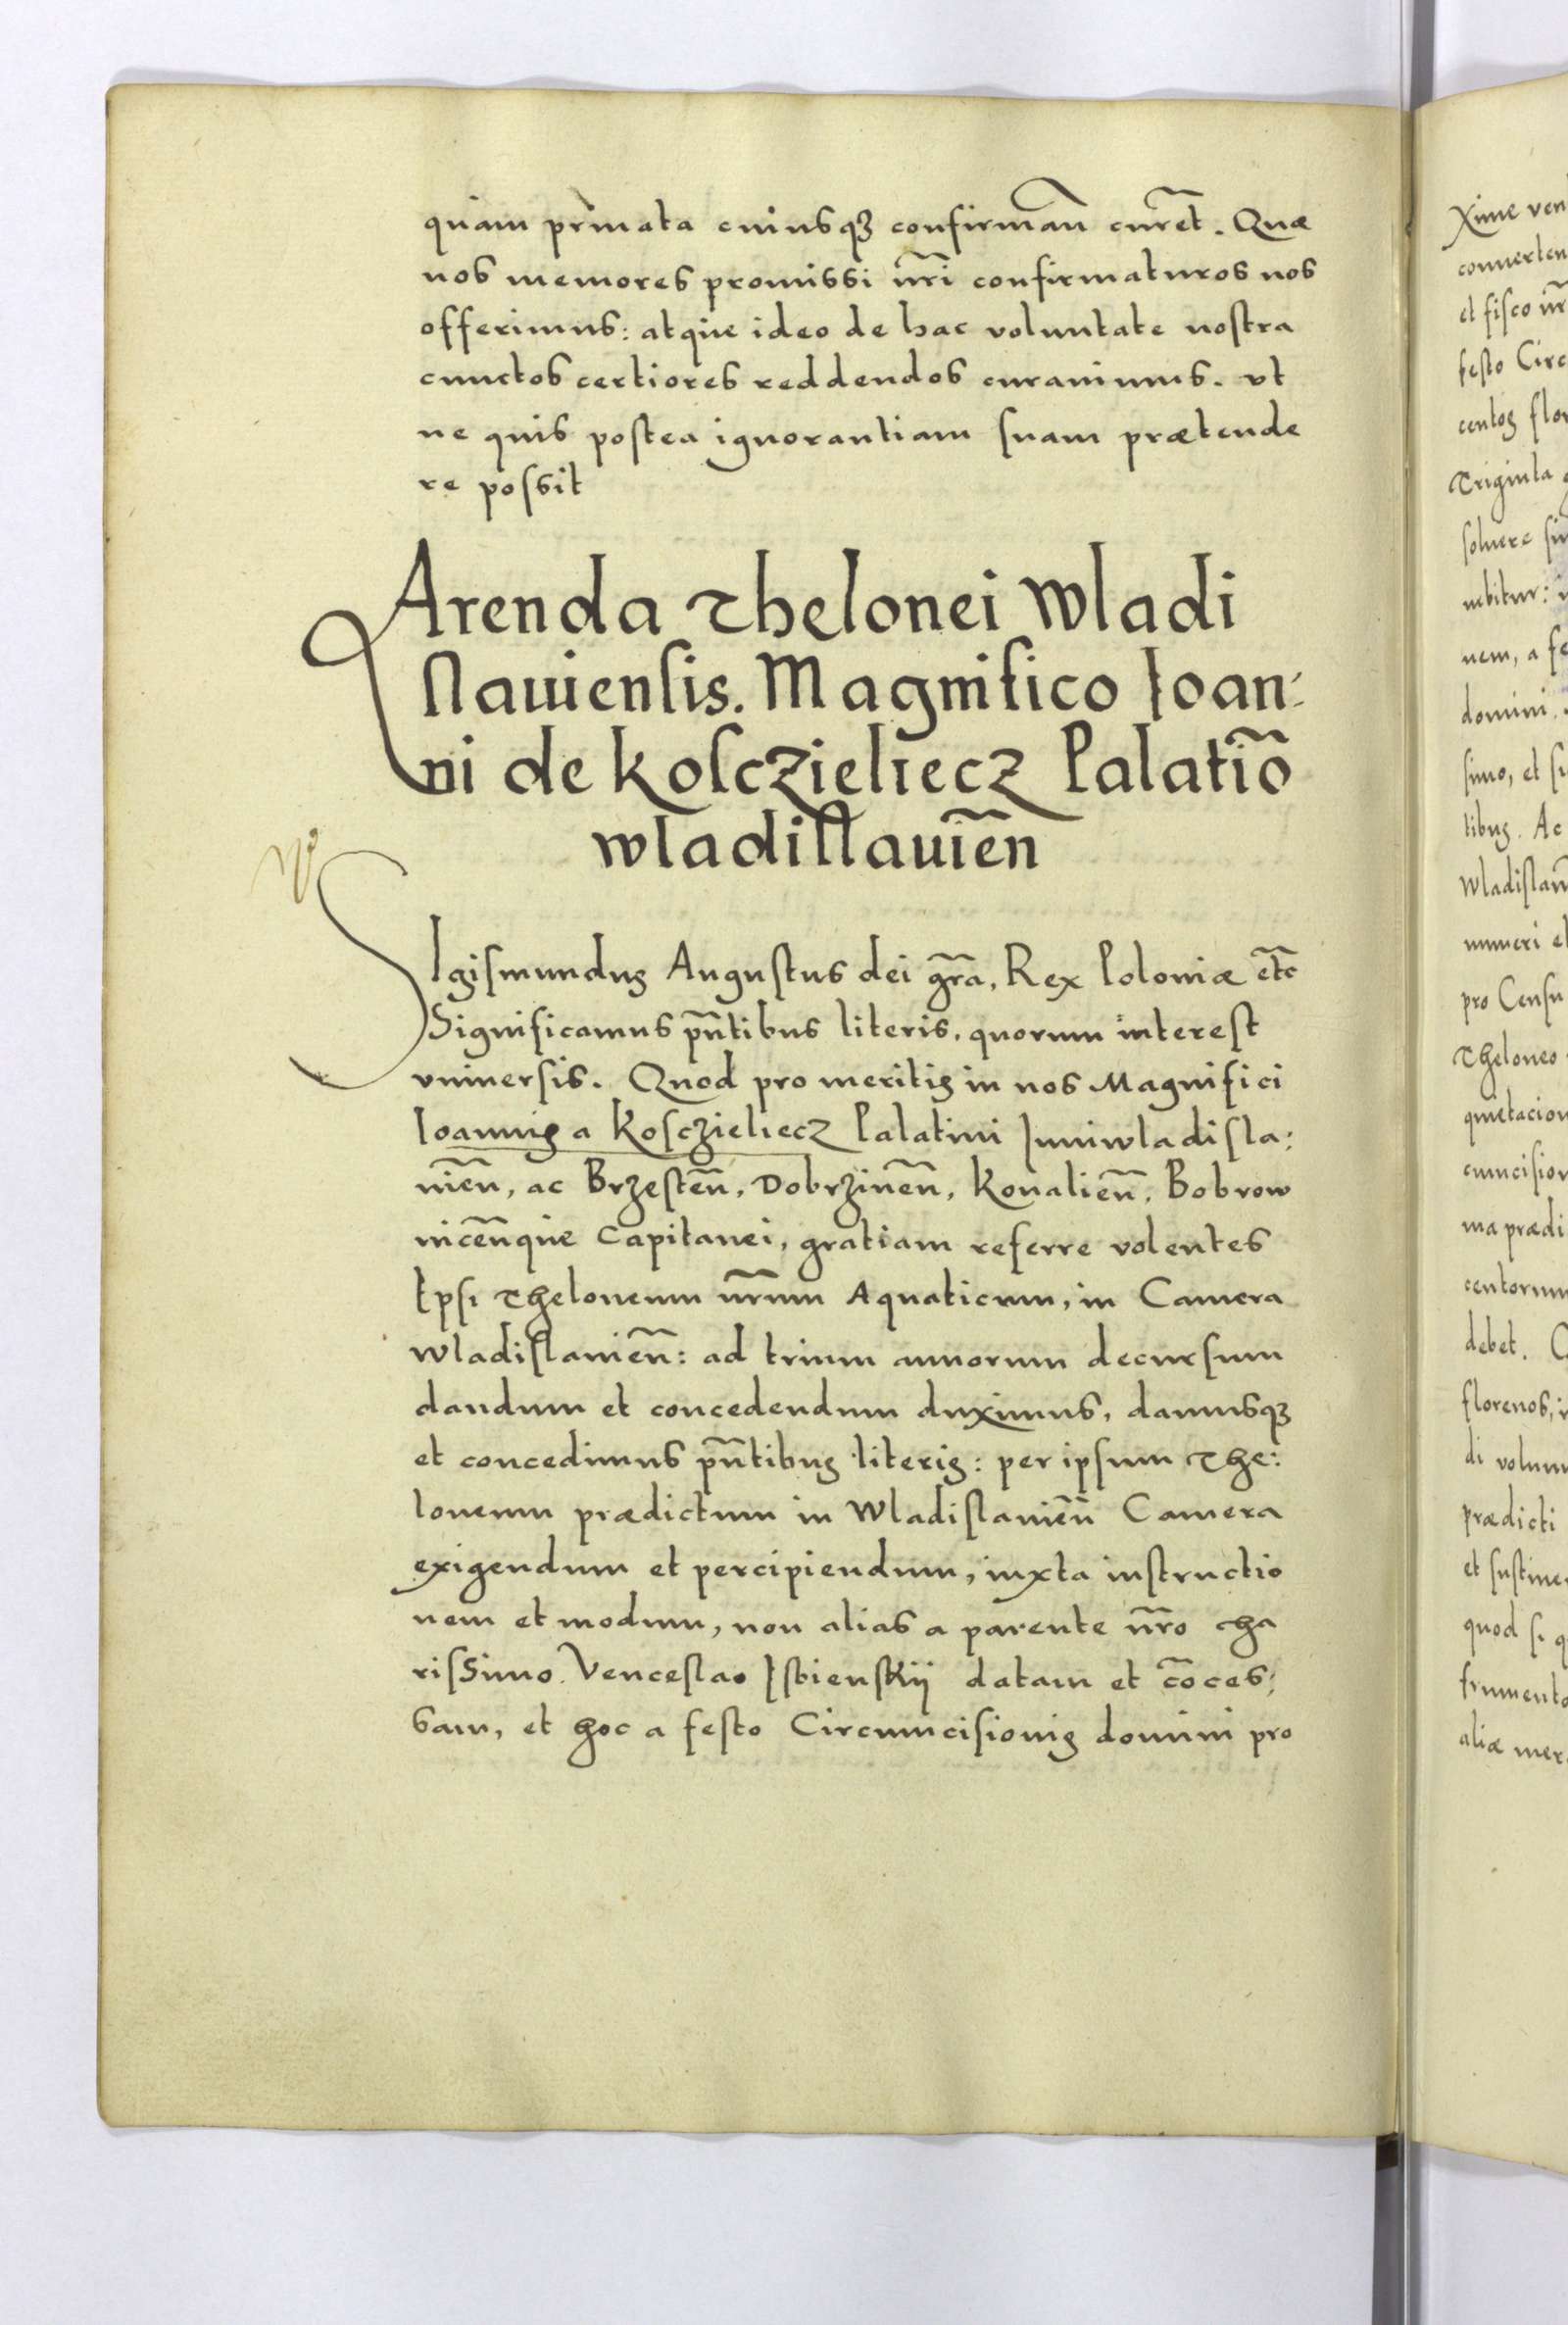 quam primata cuiusqꝫ confirmañ cur̃et. Quæ
nos memores promissi nr̃i confirmaturos nos
offerimus: atque ideo de hac voluntate nostra
cunctos certiores reddendos curauimus. vt
ne quis postea ignorantiam suam prætende
re possit
Arenda Thelonei Wladi
slauiensis. Magnifico Ioan-
ni de Kosczieliecz Palatiño
wladislauieñ
SIgismundus Augustus dei gr̃a, Rex Poloniæ etc̃
Significamus pñtibus literis, quorum interest
vniuersis. Quod pro meritis in nos Magnifici
Ioannis a Kosczieliecz Palatini Iuniwladisla:
uieñ, ac Brzesteñ, Dobrzineñ, Kovalieñ, Bobrow
niceñque Capitanei, gratiam referre volentes
Ipsi Theloneum nr̃um Aquaticum, in Camera
wladislauieñ: ad trium annorum decursum
dandum et concedendum duximus, damusqꝫ
et concedimus pñtibus literis: per ipsum The:
loneum prædictum in Wladislauieñ Camera
exigendum et percipiendum, iuxta instructio
nem et modum, non alias a parente nr̃o cha
rissimo Venceslao Isbienskij datam et cõces:
sam, et hoc a festo Circumcisionis domini pro
Xime ven
conuerten
et fisco nr̃
festo Circ
centos flor
Triginta
soluere
nebitur:
nem, a fe
domini
simo, et si
tibus. Ac
Wladislau
numeri et
pro Censu
Theloneo
quietacion
cumcision
ma prædi
centorum
debet.
florenos,
di volum
prædicti
et sustine
quod si q
frumento
aliæ mer